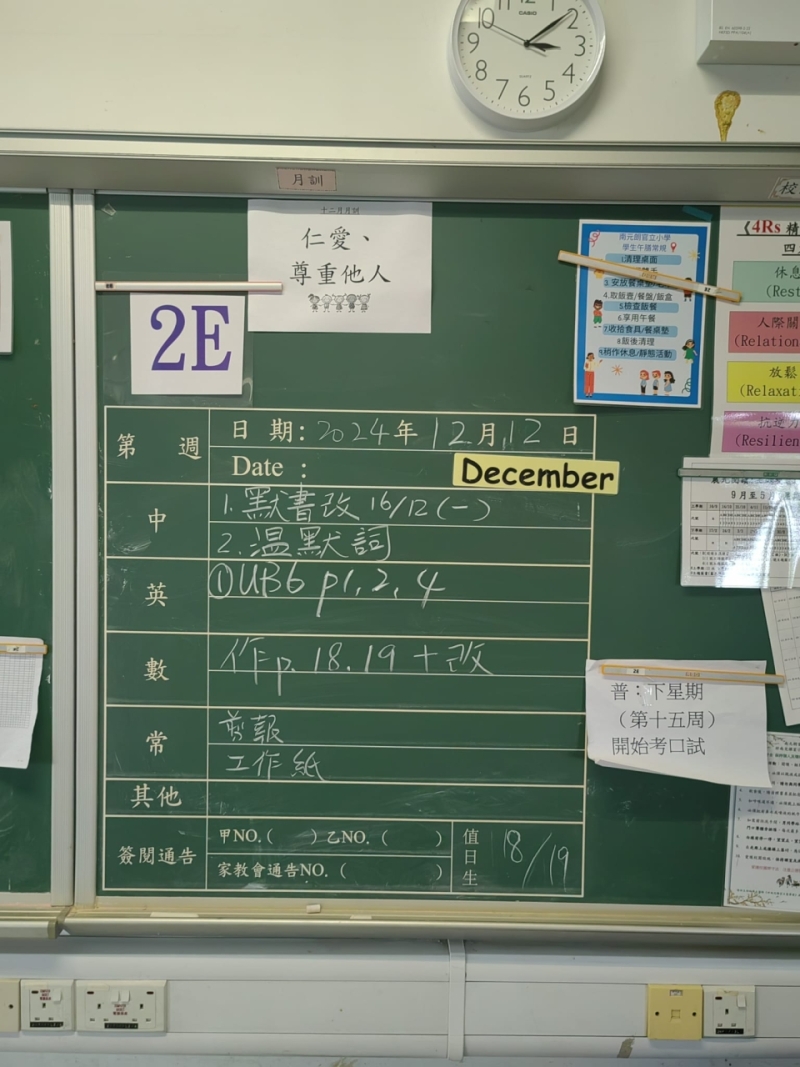 12
10
2
3
9
4
8
7
6
5
CASIO
QUARTZ
月訓
校
十二月月訓
仁愛、
尊重他人
2E
南元朗官立小學
學生午膳常規
1清理桌面
4.取飯壺/餐盤/飯盒
5檢查飯餐
6.享用午餐
7.收拾食具/餐桌墊
8飯後清理
9.稍作休息/靜態活動
《4Rs 精
四
休息
(Rest
人際關
(Relation
放鬆
(Relaxati
抗逆力
(Resilien
9月至5月
第 週
日 期: 2024年 12月,12 日
Date :
December
中
1. 默書改 16/12 (一)
2. 溫默詞
英
①UB6 p1, 2, 4
數
作p. 18. 19 + 改
常
剪報
工作紙
其他
簽閱通告
甲NO. ( ) 乙NO. ( )
家教會通告NO. ( )
值日生
18/19
普：下星期
（第十五周）
開始考口試